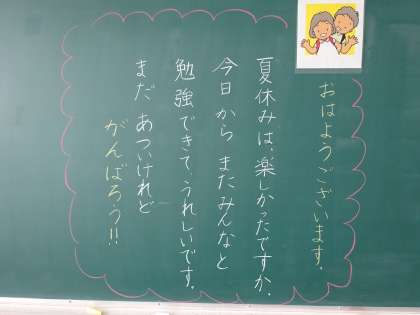 おはようございます。
夏休みは、楽しかったですか。
今日から またみんなと
勉強できて、うれしいです。
まだ あついけれど
がんばろう!!